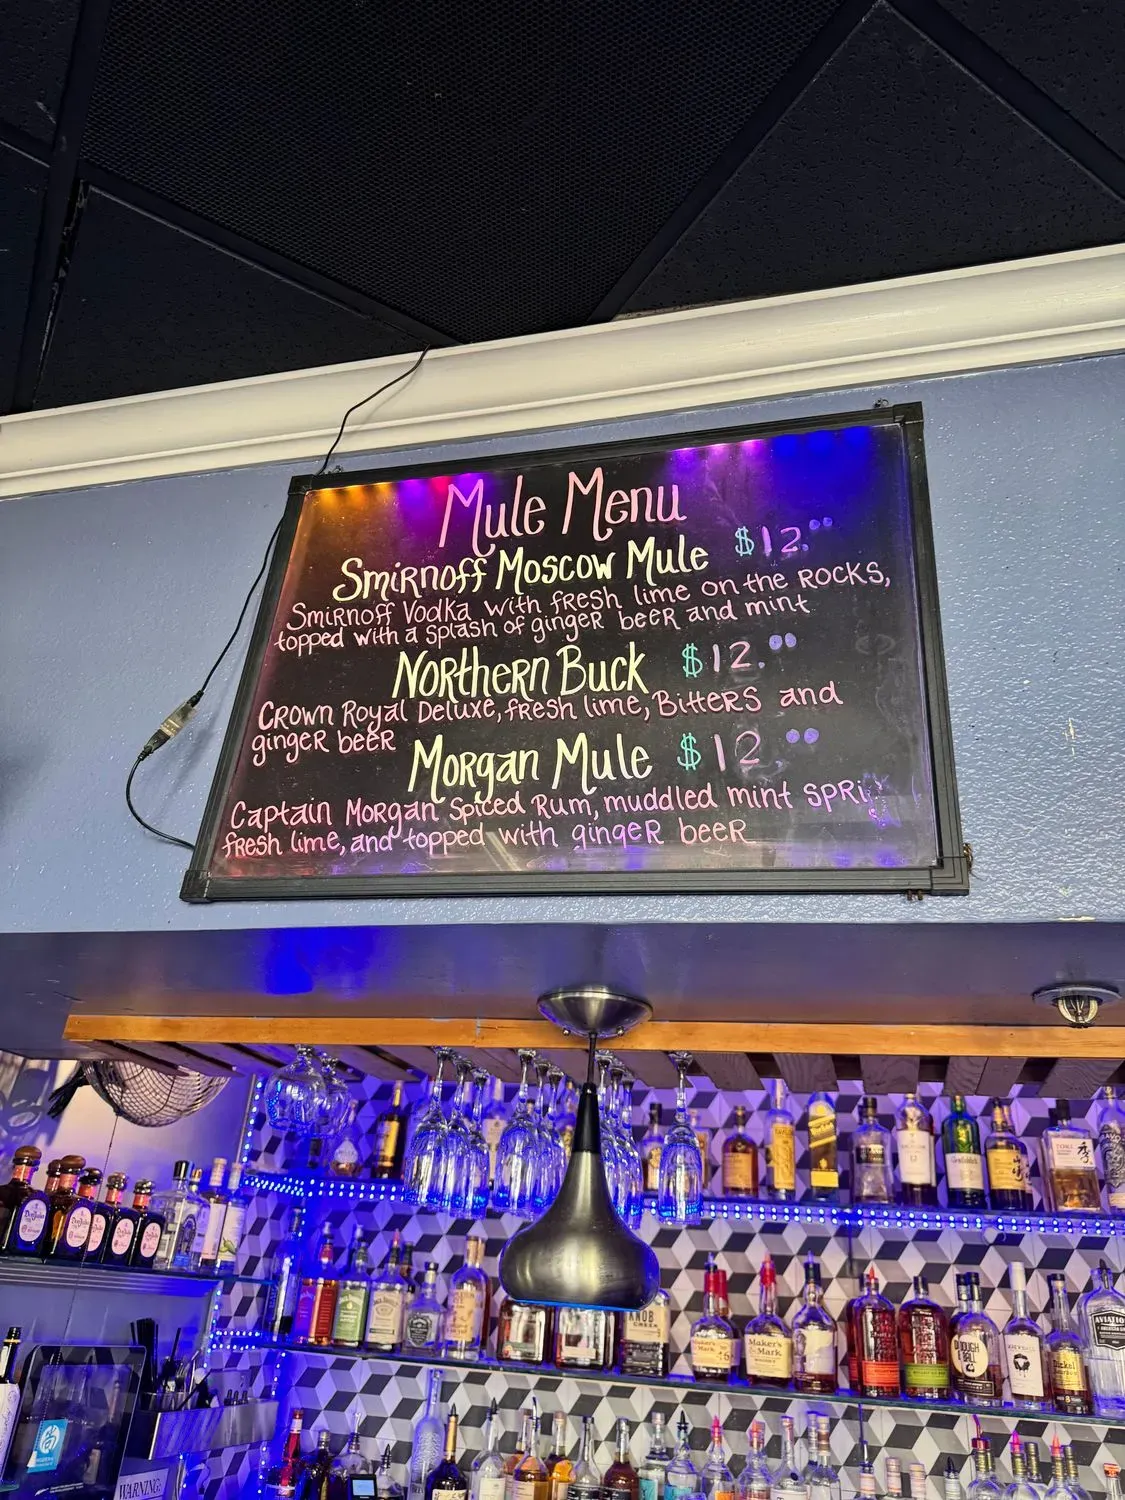 Mule Menu
Smirnoff Moscow Mule $12.00
Smirnoff Vodka with fresh lime on the ROCKS,
topped with a splash of ginger beer and mint
Northern Buck $12.00
Crown Royal Deluxe, fresh lime, Bitters and
ginger beer
Morgan Mule $12.00
Captain Morgan Spiced Rum, muddled mint spri
fresh lime, and topped with ginger beer
KNOB
CREEK
Maker's
Mark
AVIATION
WARNING: